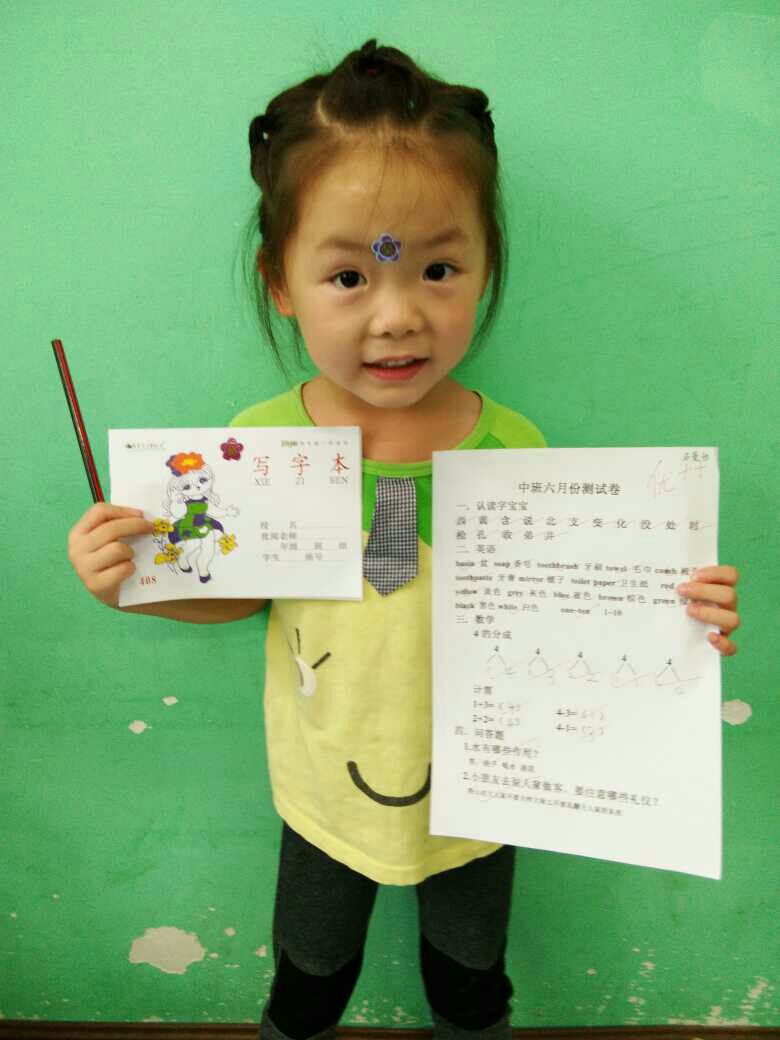 写 字 本
XIE ZI BEN
校 名
年级 班 组
学生 编号
408
优++
中班六月份测试卷
一、认读字宝宝
西 黄 含 说 北 支 变 化 没 处 时
枪 孔 收 弟 井
二、英语
basin 盆 soap 香皂 toothbrush 牙刷 towel 毛巾 comb 梳子
toothpaste 牙膏 mirror 镜子 toilet paper 卫生纸 red
yellow 黄色 grey 灰色 blue 蓝色 brown 棕色 green
black 黑色 white 白色 one-ten 1-10
三、数学
4 的分成
4 4 4 4 4
计算
1+3=(4) 4-3=(1)
2+2=(4) 4-1=(3)
四、问答题
1.水有哪些作用?
2.小朋友去别人家做客,要注意哪些礼仪?